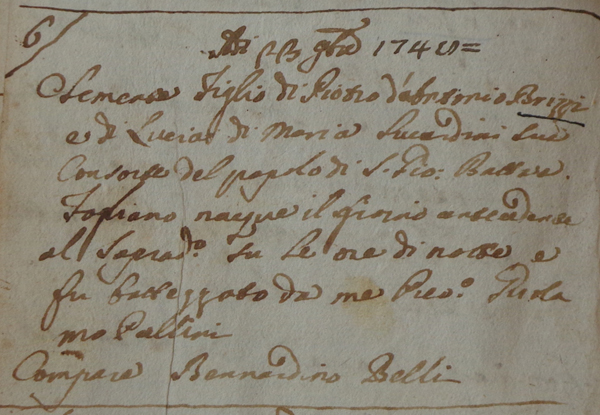 6
Adi 23 9bre 174
Clemente figlio di Pietro d'Antonio Brizzi
e di Lucia di Maria Lucardini sua
Consorte del popolo di S. Gio: Batta
nacque il giorno antecedente
al Soprad.o su le ore di notte e
fu battezzato da me
mo Pallini
Compare Bernardino Belli